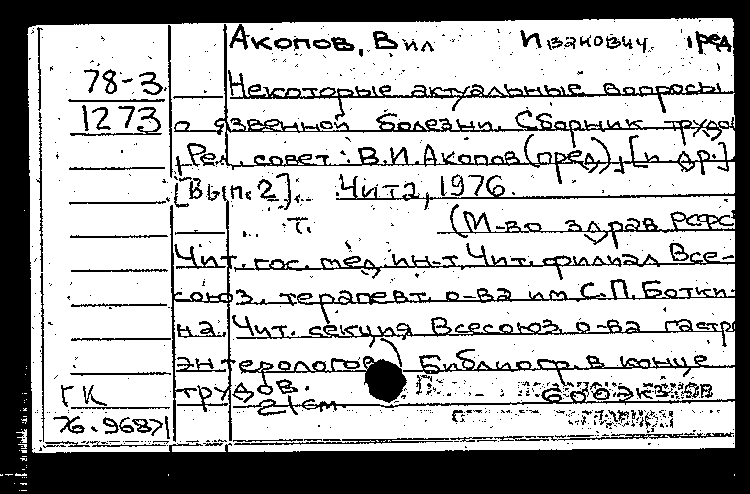 Акопов, Вил Иванович пред
78-3 Некоторые актуальные вопросы
1273 о язвенной болезни. Сборник трудо
[Ред. совет: В.И.Акопов (пред), [и др.]
[Вып.2]. Чита, 1976.
т. (М-во здрав РСФС
Чит. гос. мед. ин-т, Чит. филиал Все-
союз. терапевт. о-ва им С.П.Ботки-
на. Чит. секция Всесоюз о-ва гастро
энтерологов) Библиогр. в конце
ГК трудов. 600экз
76.96871 21см.